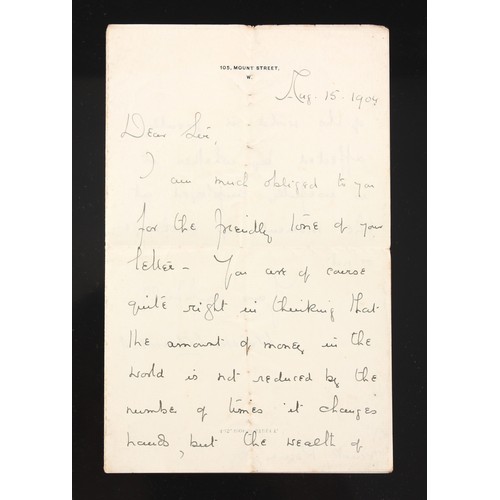 105, MOUNT STREET,
W.
Aug. 15. 1904
Dear Sir,
I am much obliged to you
for the friendly tone of your
letter – You are of course
quite right in thinking that
the amount of money in the
world is not reduced by the
number of times it changes
hands, but the wealth of